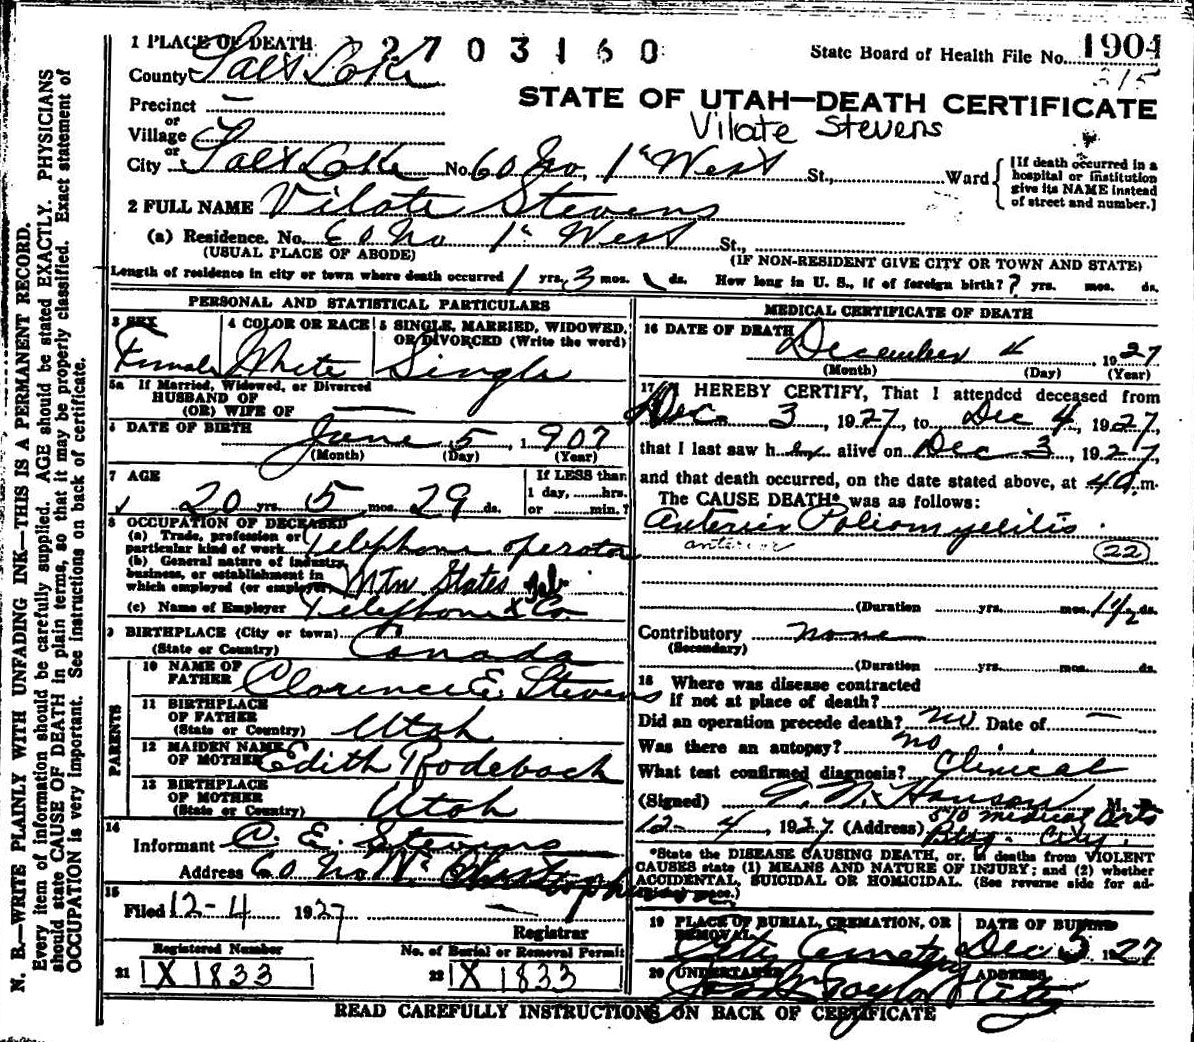 1 PLACE OF DEATH 2703160
State Board of Health File No. 1904
315
County Salt Lake
STATE OF UTAH—DEATH CERTIFICATE
Precinct —
or
Vilate Stevens
Village
or
City Salt Lake No. 60 No. 1st West St., Ward
[If death occurred in a hospital or institution give its NAME instead of street and number.]
2 FULL NAME Vilate Stevens
(a) Residence. No. 60 No 1st West St.,
(USUAL PLACE OF ABODE) (IF NON-RESIDENT GIVE CITY OR TOWN AND STATE)
Length of residence in city or town where death occurred 1 yrs. 3 mos. ds. How long in U. S., if of foreign birth? ? yrs. mos. ds.
PERSONAL AND STATISTICAL PARTICULARS
3 SEX 4 COLOR OR RACE 5 SINGLE, MARRIED, WIDOWED, OR DIVORCED (Write the word)
Female White Single
5a If Married, Widowed, or Divorced
HUSBAND OF
(OR) WIFE OF —
6 DATE OF BIRTH June 5, 1907
(Month) (Day) (Year)
7 AGE If LESS than
20 yrs. 5 mos. 29 ds. 1 day, ......hrs.
or ...... min.?
8 OCCUPATION OF DECEASED
(a) Trade, profession or
particular kind of work Telephone operator
(b) General nature of industry,
business, or establishment in
which employed (or employer) Mtn States Tel
(c) Name of Employer Telephone & Co.
9 BIRTHPLACE (City or town)
(State or Country) Canada
PARENTS
10 NAME OF
FATHER Clarence E. Stevens
11 BIRTHPLACE
OF FATHER
(State or Country) Utah
12 MAIDEN NAME
OF MOTHER Edith Rodeback
13 BIRTHPLACE
OF MOTHER
(State or Country) Utah
14
Informant C. E. Stevens
Address 60 No W
15
Filed 12-4 1927 —
Registrar
Registered Number No. of Burial or Removal Permit
21 X 1833 22 X 1833
MEDICAL CERTIFICATE OF DEATH
16 DATE OF DEATH
December 4 1927
(Month) (Day) (Year)
17 I HEREBY CERTIFY, That I attended deceased from
Dec. 3, 1927, to Dec 4, 1927,
that I last saw her alive on Dec 3, 1927,
and that death occurred, on the date stated above, at 4 a.m.
The CAUSE DEATH* was as follows:
Anterior Poliomyelitis.
anterior 22
(Duration yrs. mos. 1 1/2 ds.
Contributory none
(Secondary)
(Duration yrs. mos. ds.
18 Where was disease contracted
if not at place of death?
Did an operation precede death? no Date of —
Was there an autopsy? no
What test confirmed diagnosis? Clinical
(Signed) Hanson M. D.
12-4, 1927 (Address) 510 Medical Arts
Bldg. City.
*State the DISEASE CAUSING DEATH, or, in deaths from VIOLENT
CAUSES state (1) MEANS AND NATURE OF INJURY; and (2) whether
ACCIDENTAL, SUICIDAL OR HOMICIDAL. (See reverse side for additional space.)
19 PLACE OF BURIAL, CREMATION, OR REMOVAL DATE OF BURIAL
City Cemetery Dec 5 1927
20 UNDERTAKER ADDRESS
Jos Wm Taylor City
READ CAREFULLY INSTRUCTIONS ON BACK OF CERTIFICATE
N. B.—WRITE PLAINLY WITH UNFADING INK—THIS IS A PERMANENT RECORD.
Every item of information should be carefully supplied. AGE should be stated EXACTLY. PHYSICIANS
should state CAUSE OF DEATH in plain terms, so that it may be properly classified. Exact statement of
OCCUPATION is very important. See instructions on back of certificate.